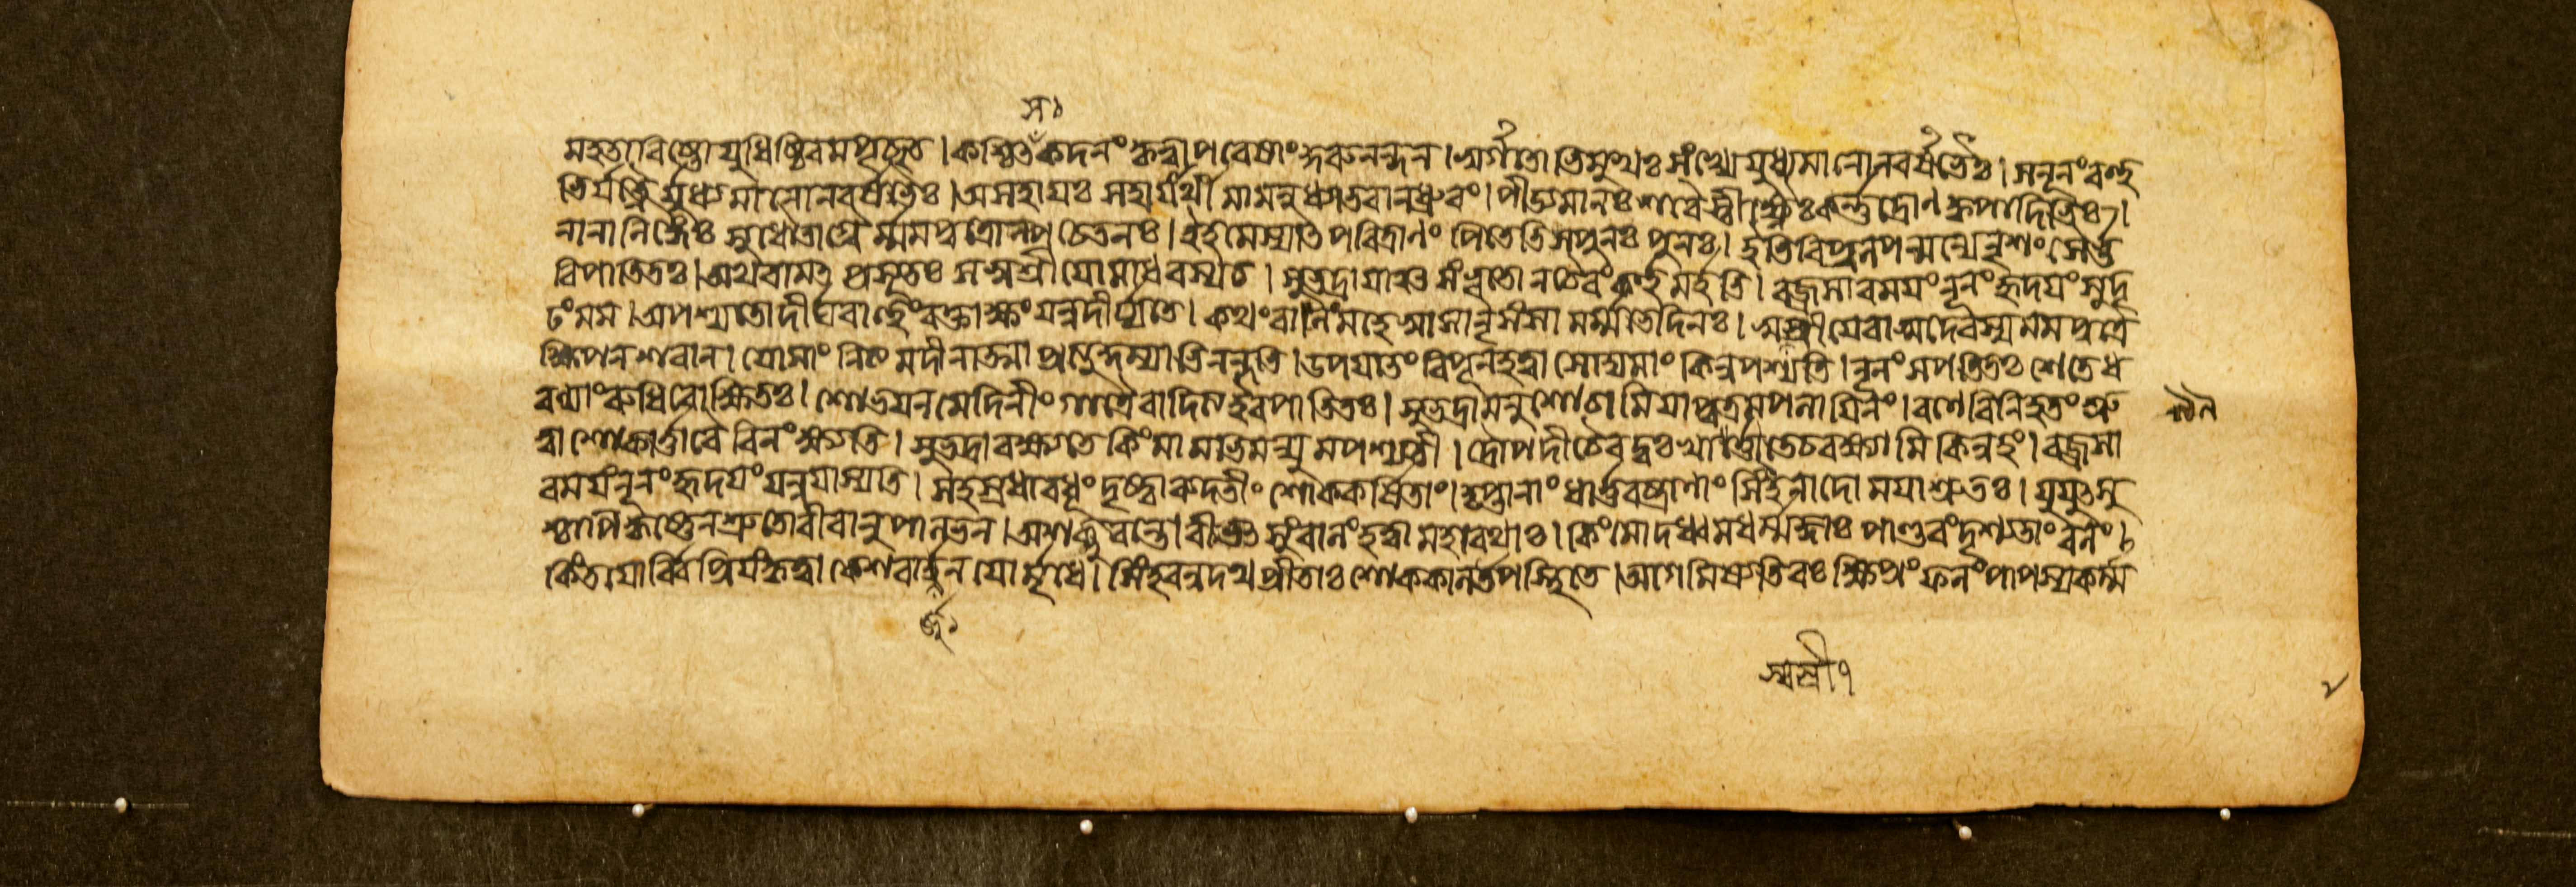 স১
মহতাবিষ্টো যুধিষ্ঠিরমপৃচ্ছত । কশ্চিৎ কদনং কৃত্বা পরেষাং কুরুনন্দন । স্বর্গতো ভিমুখঃ সংখ্যে যুধ্যমানো নরর্ষভৈঃ । স নূনং বহু
ভির্যত্নৈর্যুধ্যমানো নরর্ষভৈঃ । অসহায়ঃ সহায়ার্থী মামনুধ্যাতবান ধ্রুবং । পীড্যমানঃ শরৈস্তীক্ষ্ণৈঃ কর্ণদ্রোণকৃপাদিভিঃ ।
নানালিঙ্গৈঃ সুধৌতাগ্রৈর্ম্মম পুত্রো ল্পচেতনঃ । ইহ মে স্যাৎ পরিত্রাণং পিতেতি স পুনঃ পুনঃ । ইতি বিলপন মন্যে নৃশংসৈর্ভু
বি পাতিতঃ । অথবা মৎ প্রসূতঃ স স্বস্রীয়ো মাধবস্য চ । সুভদ্রায়াঞ্চ সংভূতো ন চৈবং বক্তুমর্হতি । বজ্রসারময়ং নূনং হৃদয়ং সুদৃ
ঢং মম । অপশ্যতো দীর্ঘবাহুং রক্তাক্ষং যন্ন দীর্য্যতে । কথং বালে মহেষ্বাসা নৃশংসা মর্ম্মভেদিনঃ । স্বস্রীয়ে বাসুদেবস্য মম পুত্রে
ক্ষিপন শরান । যো মাং নিত্যমদীনাত্মা প্রত্যুদ্গম্যাভিনন্দতি । উপযান্তং রিপূন হত্বা সোদ্য মাং কিন্ন পশ্যতি । নূনং স পতিতঃ শেতে ধ
রণ্যাং রুধিরোক্ষিতঃ । শোভয়ন মেদিনীং গাত্রৈরাদিত্য ইব পাতিতঃ । সুভদ্রামনুশোচামি যা পুত্রমপলায়িনং । রণে বিনিহতং শ্রু
ত্বা শোকার্ত্তা বৈ বিনংক্ষ্যতি । সুভদ্রা বক্ষ্যতে কিং মামভিমন্যুমপশ্যতী । দ্রৌপদী চৈব দুঃখার্ত্তে তে চ বক্ষ্যামি কিন্ন্বহং । বজ্রসা
রময়ং নূনং হৃদয়ং যন্ন যাস্যতি । সহস্রধা বধূং দৃষ্ট্বা রুদতীং শোককর্ষিতাং । হৃষ্টানাং ধার্ত্তরাষ্ট্রাণাং সিংহনাদো ময়া শ্রুতঃ । যুযুৎসু
শ্চাপি কৃষ্ণেন শ্রুতো বীরানুপালভন । অশক্নুবন্তো বীভৎসুং বালং হত্বা মহারথাঃ । কিং মোদধ্বমধর্ম্মজ্ঞাঃ পাণ্ডবং দৃশ্যতাং বলং ।
কিং তয়োর্বিপ্রিয়ং কৃত্বা কেশবার্জুনয়োর্মৃধে । সিংহবন্নদথ প্রীতাঃ শোককাল উপস্থিতে । আগমিষ্যতি বঃ ক্ষিপ্রং ফলং পাপস্য কর্ম্ম
র্জু১